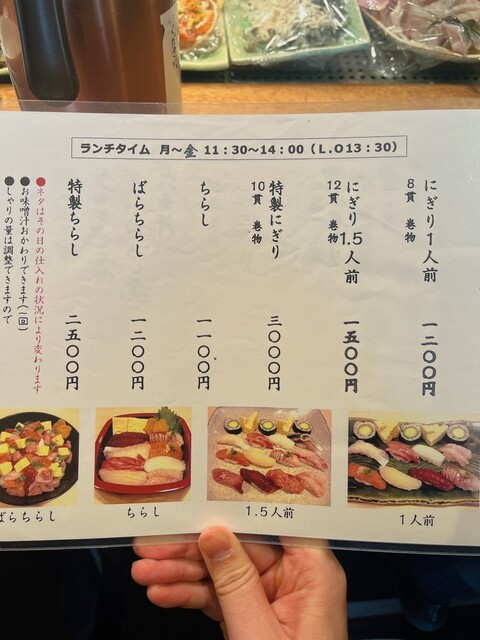 ランチタイム 月～金 11：30～14：00（L.O13：30）
にぎり1人前
8貫 巻物
一二〇〇円
にぎり1.5人前
12貫 巻物
一五〇〇円
特製にぎり
10貫 巻物
三〇〇〇円
ちらし
一一〇〇円
ばらちらし
一二〇〇円
特製ちらし
二五〇〇円
●ネタはその日の仕入れの状況により変わります
●お味噌汁おかわりできます(一回)
●しゃりの量は調整できますので
ばらちらし
ちらし
1.5人前
1人前